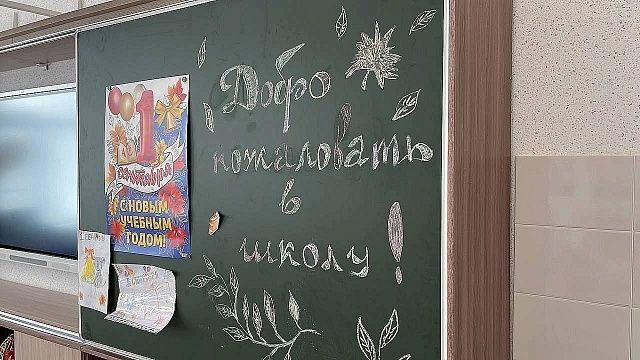 Добро
пожаловать
в
школу!
1
сентября
С НОВЫМ
УЧЕБНЫМ
ГОДОМ!